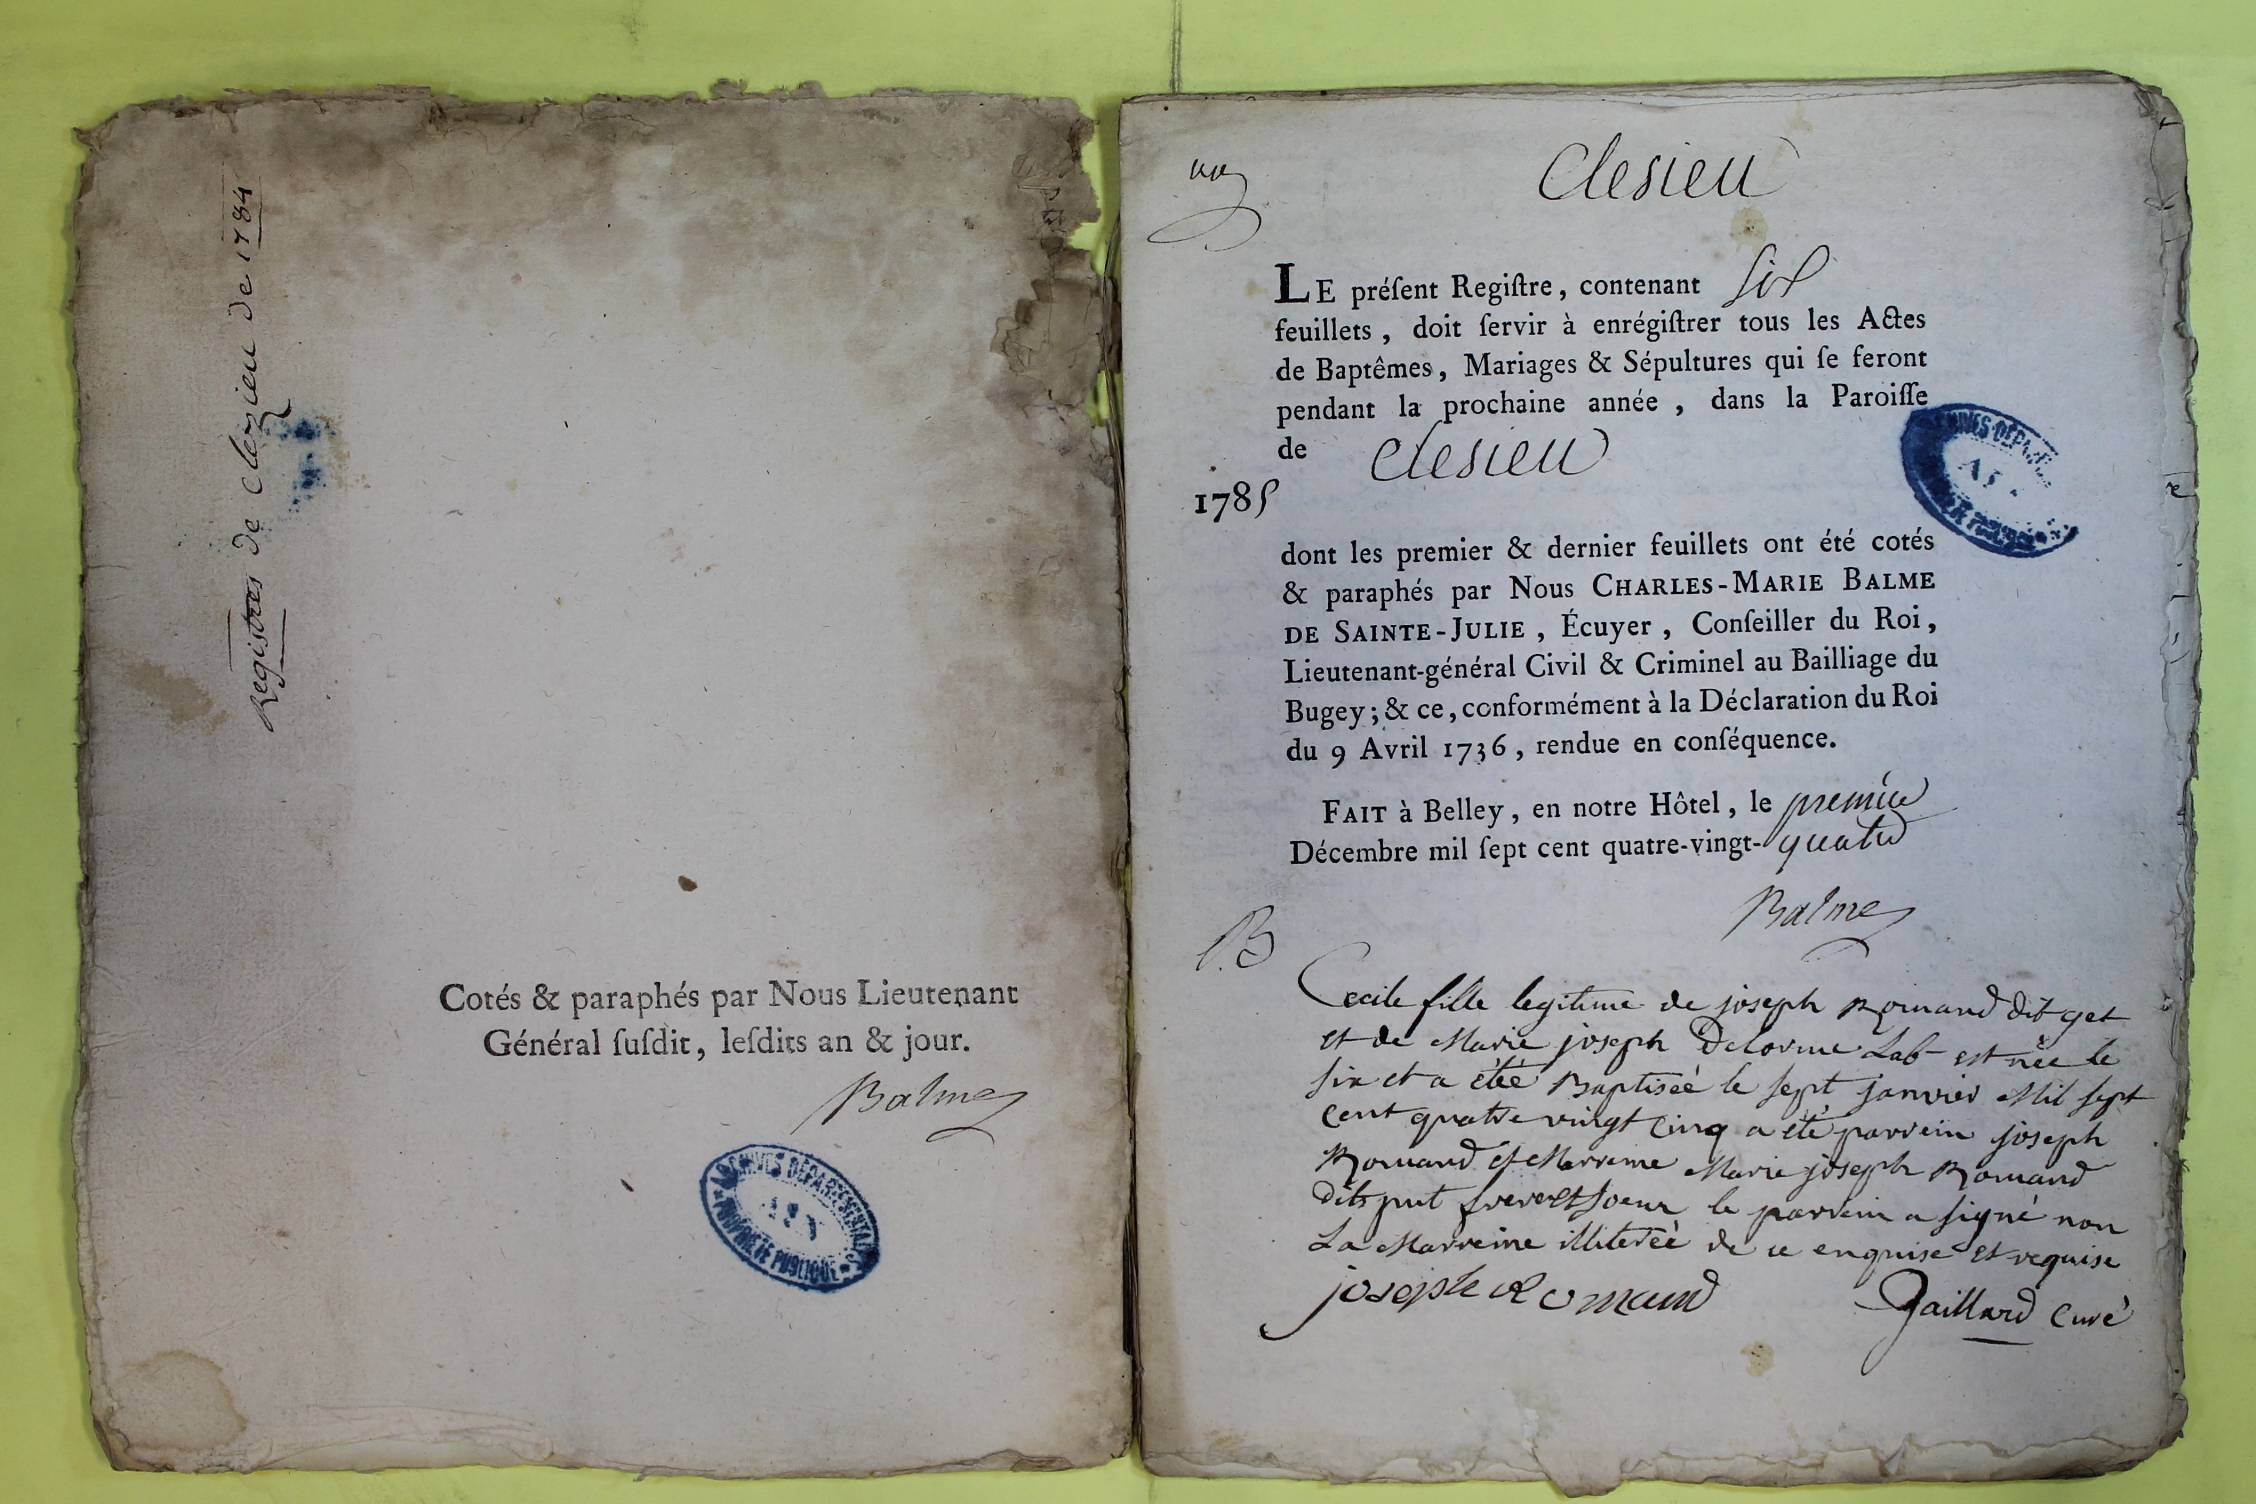 Registres de clezieu de 1784
Cotés & paraphés par Nous Lieutenant
Général ſuſdit, leſdits an & jour.
Balme
ARCHIVES DÉPARTEMENTALES
AIN
PROPRIÉTÉ PUBLIQUE
clesieu
LE préſent Regiſtre, contenant six
feuillets, doit ſervir à enrégiſtrer tous les Actes
de Baptêmes, Mariages & Sépultures qui ſe feront
pendant la prochaine année, dans la Paroiſſe
de clesieu
1785
dont les premier & dernier feuillets ont été cotés
& paraphés par Nous CHARLES-MARIE BALME
DE SAINTE-JULIE, Écuyer, Conſeiller du Roi,
Lieutenant-général Civil & Criminel au Bailliage du
Bugey; & ce, conformément à la Déclaration du Roi
du 9 Avril 1736, rendue en conſéquence.
FAIT à Belley, en notre Hôtel, le premier
Décembre mil ſept cent quatre-vingt-quatre
Balme
B
Cecile fille legitime de joseph Romand dit get
et de Marie joseph Delorme Lab est née le
six et a été Baptiseé le sept janvier Mil sept
cent quatre vingt cinq a été parrein joseph
Romand et Marreine Marie joseph Romand
dits put frere et soeur le parrein a signé non
La Marreine illitereé de ce enquise et requise
joseph Romand
Gaillard curé